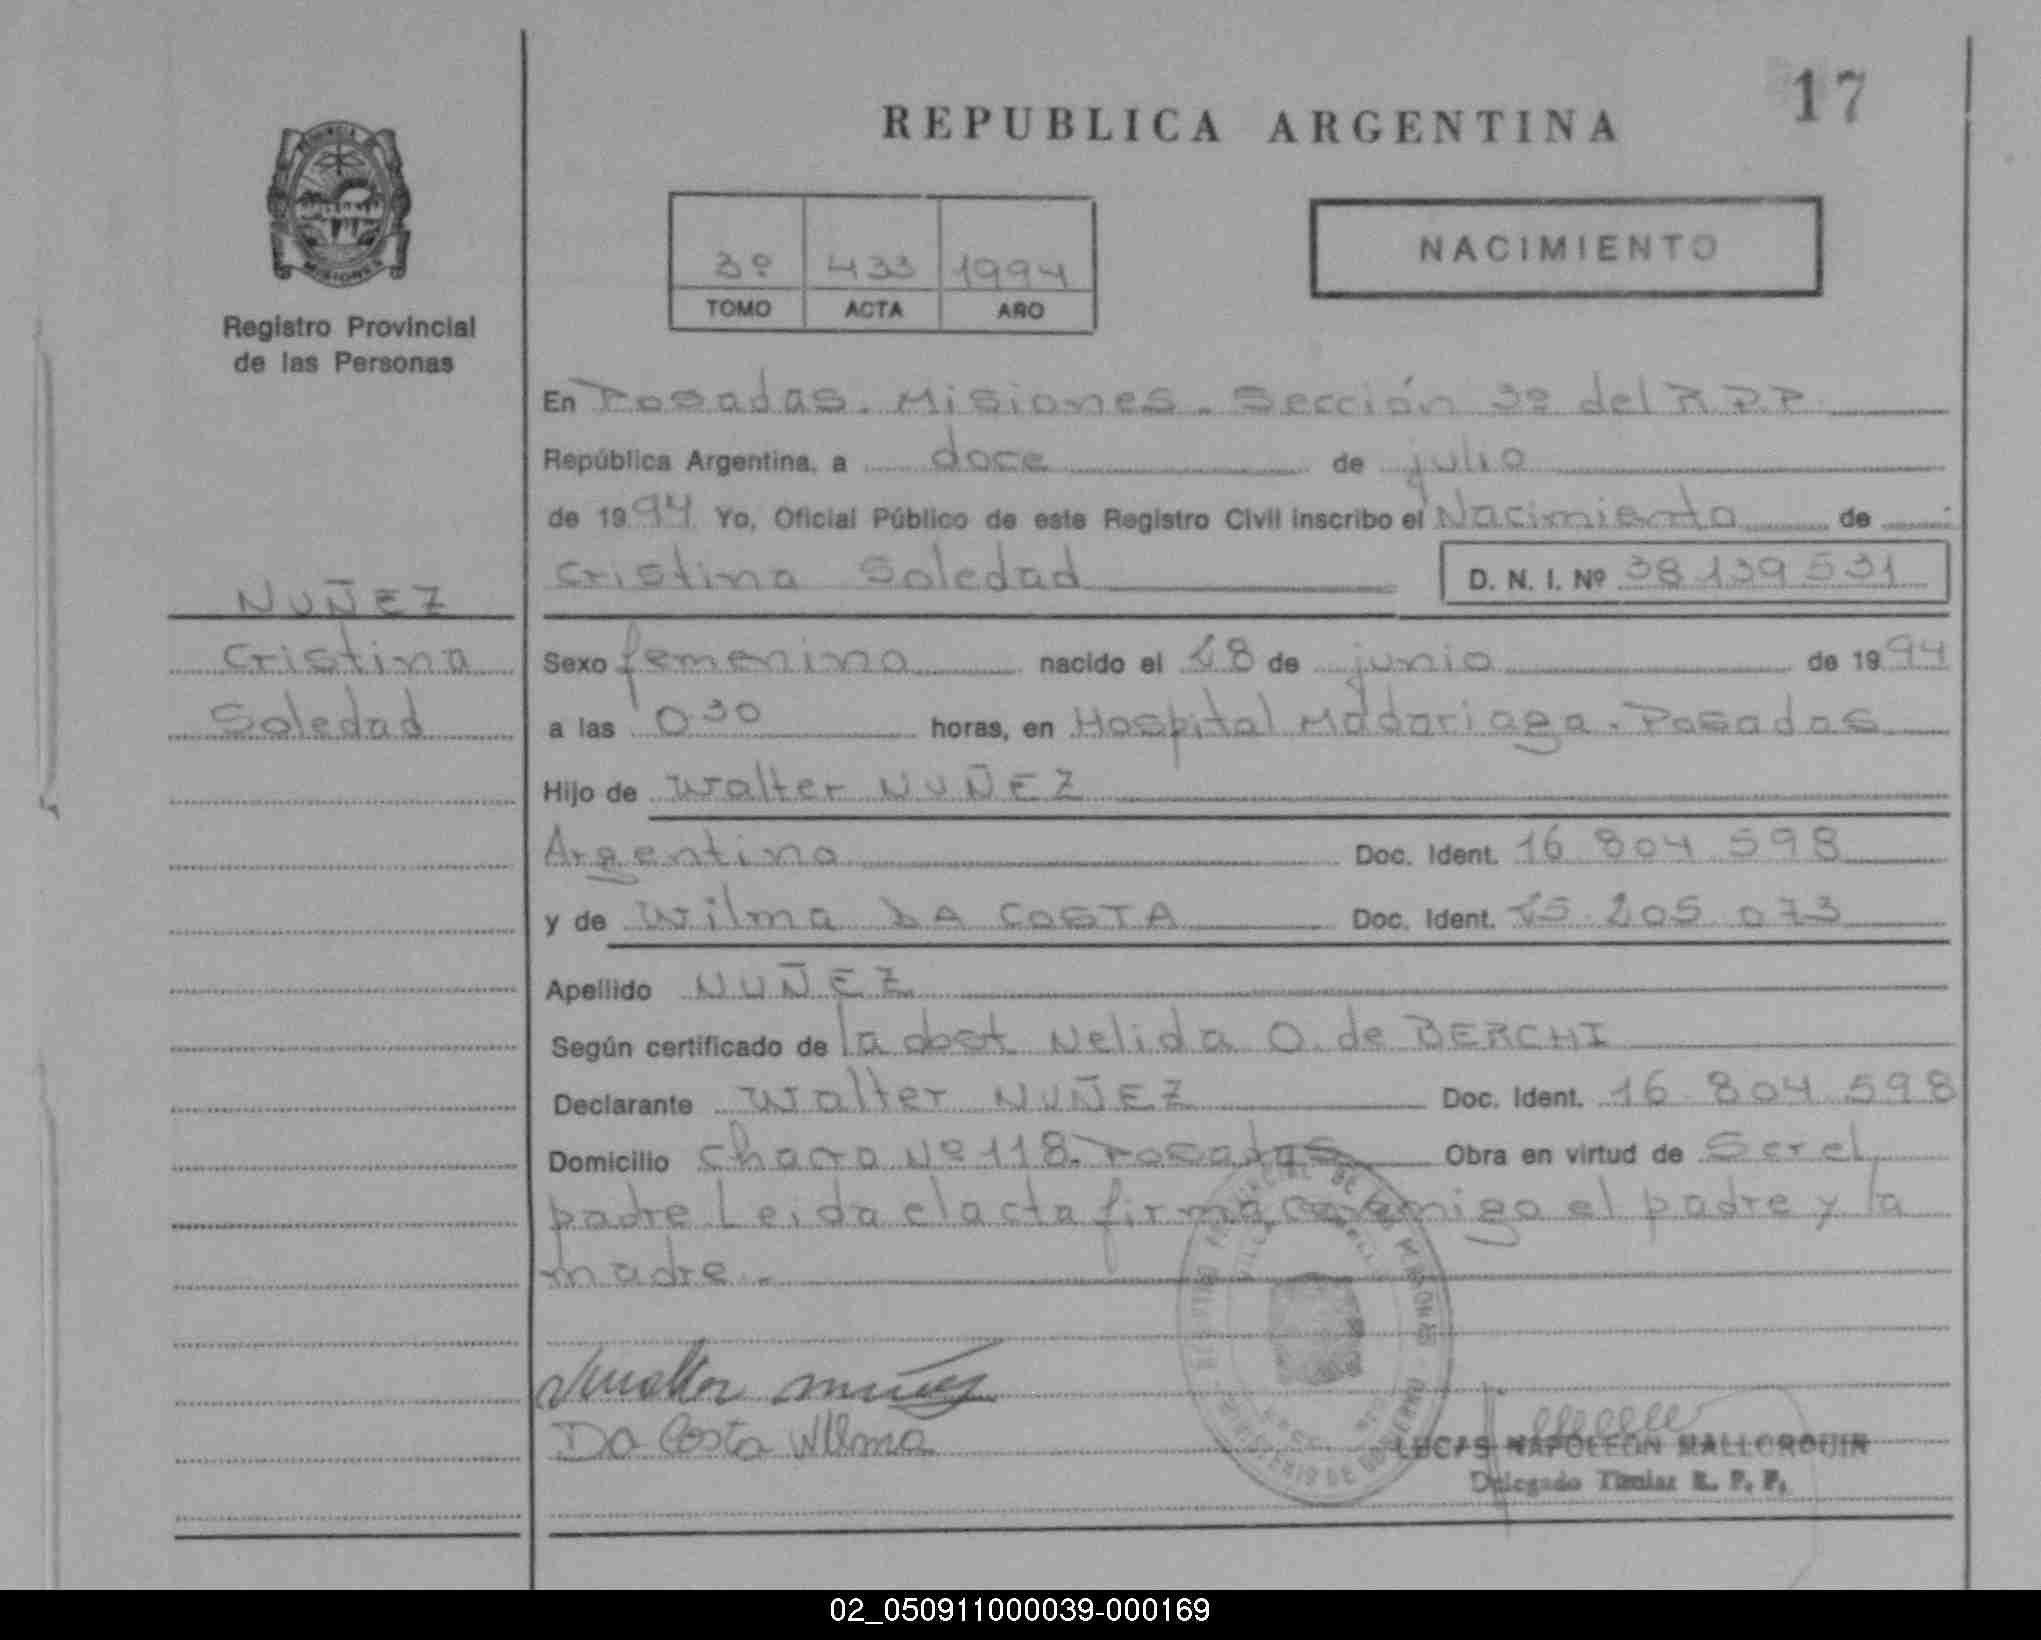 17
REPUBLICA ARGENTINA
3º 433 1994
TOMO ACTA AÑO
NACIMIENTO
MISIONES
Registro Provincial
de las Personas
En Posadas. Misiones. Sección 3º del R.P.P.
República Argentina, a doce de julio
de 1994 Yo, Oficial Público de este Registro Civil inscribo el Nacimiento de
Cristina Soledad D. N. I. Nº 38139531
NUÑEZ
Cristina
Soledad
Sexo femenino nacido el 28 de junio de 1994
a las 0.30 horas, en Hospital Madariaga. Posadas
Hijo de Walter NUÑEZ
Argentino Doc. Ident. 16 804 598
y de Wilma DA COSTA Doc. Ident. 15.205 073
Apellido NUÑEZ
Según certificado de la obst Nelida O. de BERCHI
Declarante Walter NUÑEZ Doc. Ident. 16 804 598
Domicilio Chacra Nº 118. Posadas Obra en virtud de Ser el
padre Leida el acta firma conmigo el padre y la
madre.-
Walter Nuñez
Da Costa Wilma
MINISTERIO DE GOBIERNO
LUCAS NAPOLEON MALLORQUIN
Delegado Titular R. P. P.
02_050911000039-000169